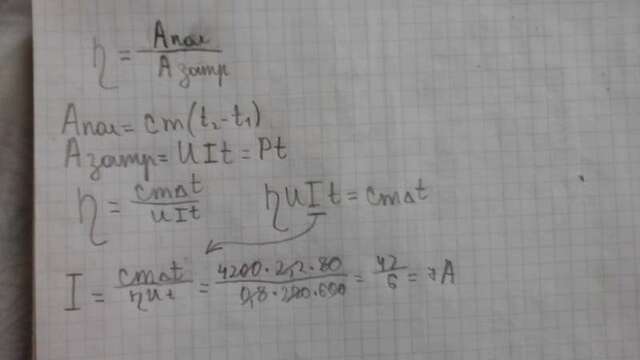 η = Aпол / Aзатр
Aпол = cm(t₂-t₁)
Aзатр = UIt = Pt
η = cmΔt / UIt   ηUIt = cmΔt
I = cmΔt / ηUt = 4200·2,2·80 / 0,8·220·600 = 42 / 6 = 7A